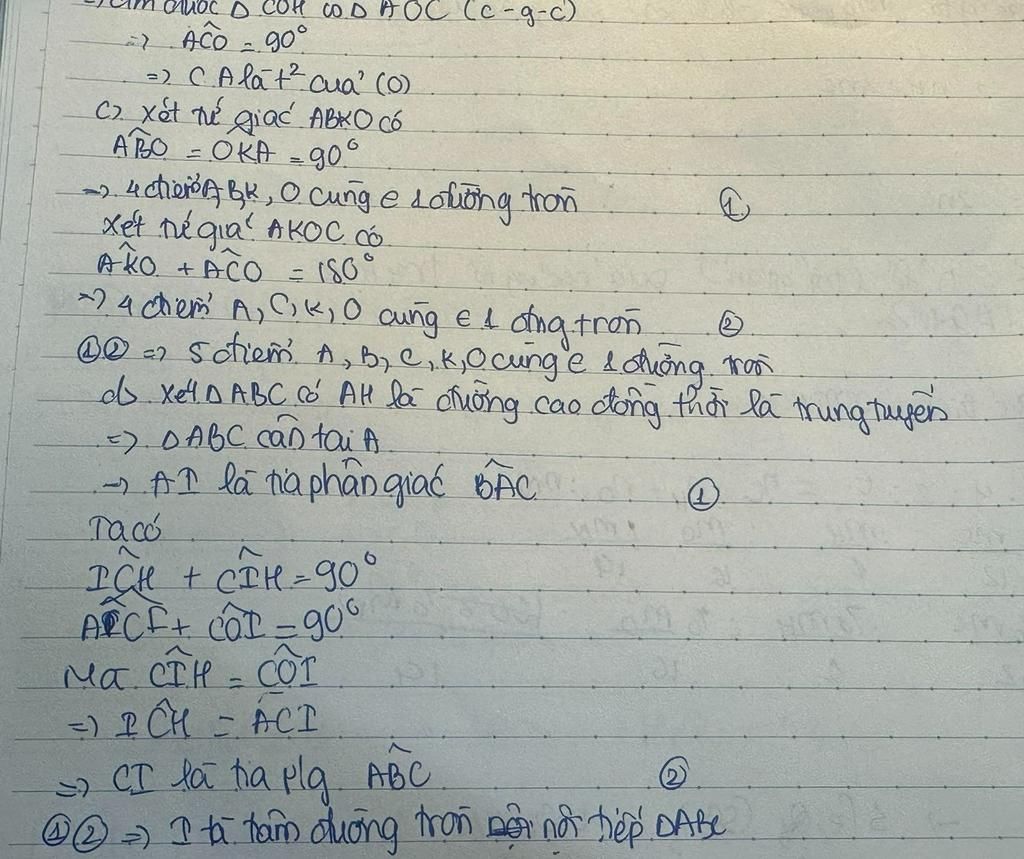 C/m được Δ COH ∽ Δ AOC (c-g-c)
=> AĈO = 90°
=> CA là t² của (O)
c) Xét tứ giác ABKO có
AB̂O = OK̂A = 90°
=> 4 điểm A, B, K, O cùng ∈ 1 đường tròn ①
Xét tứ giác AKOC có
AK̂O + AĈO = 180°
=> 4 điểm A, C, K, O cùng ∈ 1 đng tròn ②
①② => 5 điểm A, B, C, K, O cùng ∈ 1 đường tròn
d) Xét Δ ABC có AH là đường cao đồng thời là trung tuyến
=> Δ ABC cân tại A
-> AI là tia phân giác BÂC ①
Ta có
IĈH + CÎH = 90°
AĈI + CÔI = 90°
Mà CÎH = CÔI
=> IĈH = ACI
=> CI là tia p/g AB̂C ②
①② => I là tâm đường tròn nội tiếp ΔABC